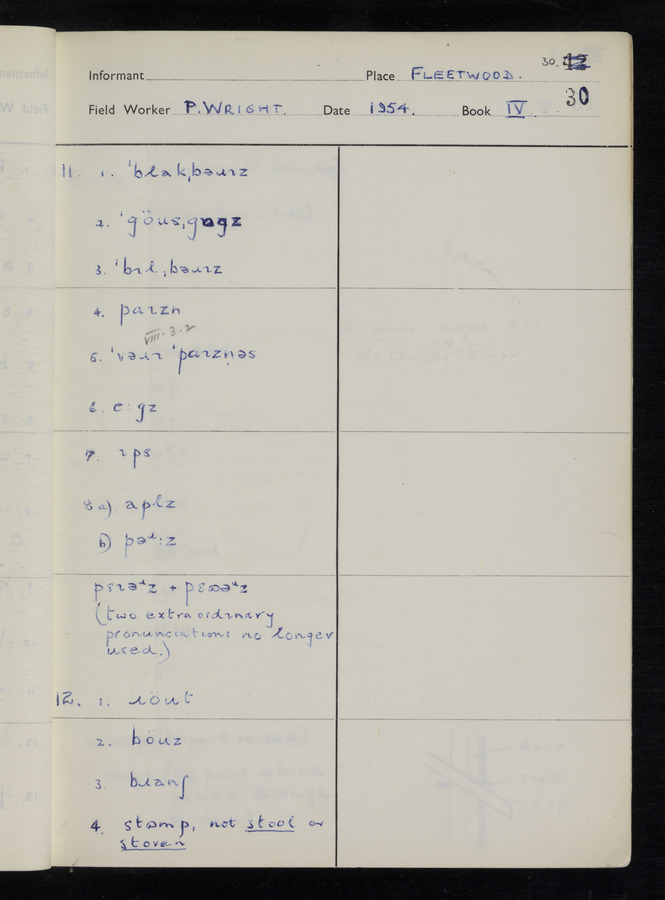 Informant Place FLEETWOOD. 30.
Field Worker P. WRIGHT. Date 1954. Book IV 30
11. 1. ˈblakˌbəɹɪz
2. ˈgöusˌgɒgz
3. ˈbɪlˌbəɹɪz
4. paɪzn
VIII.3.2
5. ˈvəɹɪ ˈpaɪzṇəs
6. e:gz
7. ɪps
8 a) aplz
b) pəɹ:z
(two extraordinary
pronunciations no longer
used.)
12. 1. ɹöut
2. böuz
3. bɹanʃ
4. stɒmp, not stool or
stoven